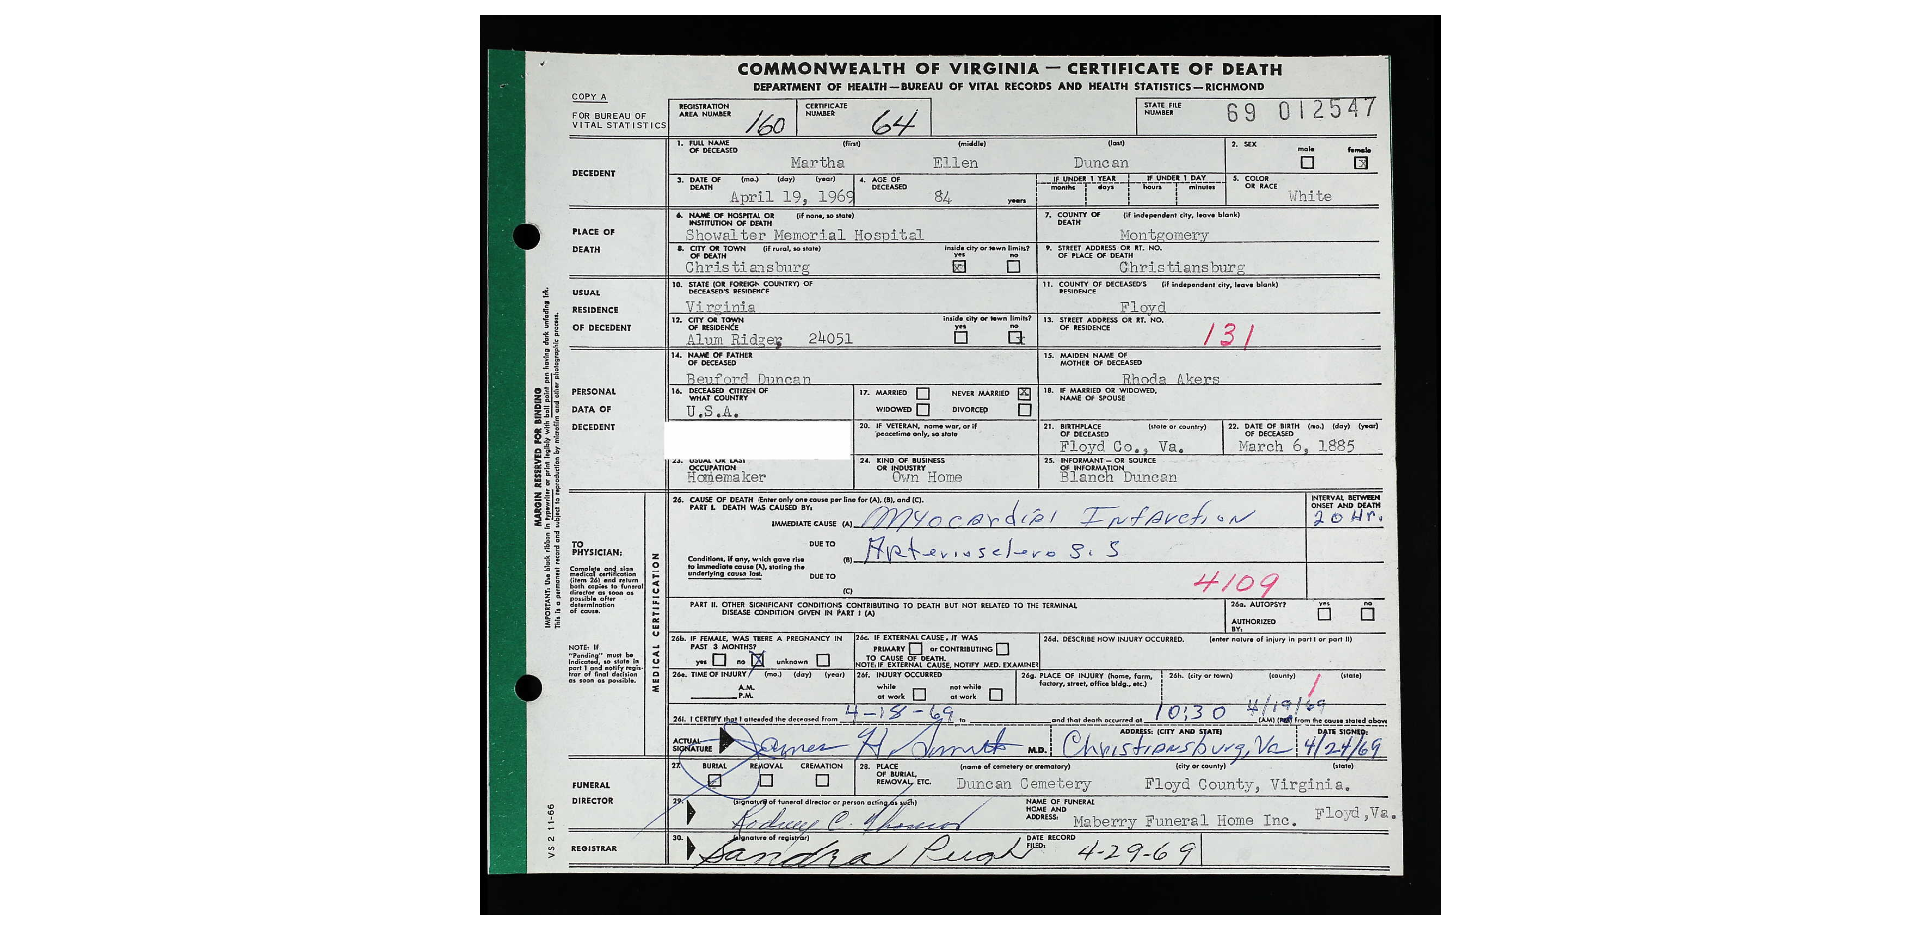 COMMONWEALTH OF VIRGINIA — CERTIFICATE OF DEATH
DEPARTMENT OF HEALTH—BUREAU OF VITAL RECORDS AND HEALTH STATISTICS—RICHMOND
COPY A
FOR BUREAU OF VITAL STATISTICS
REGISTRATION AREA NUMBER 160
CERTIFICATE NUMBER 64
STATE FILE NUMBER 69 012547
DECEDENT
1. FULL NAME OF DECEASED (first) (middle) (last)
Martha Ellen Duncan
2. SEX male female X
3. DATE OF DEATH (mo.) (day) (year)
April 19, 1969
4. AGE OF DECEASED 84 years
IF UNDER 1 YEAR months days
IF UNDER 1 DAY hours minutes
5. COLOR OR RACE White
PLACE OF DEATH
6. NAME OF HOSPITAL OR INSTITUTION OF DEATH (if none, so state)
Showalter Memorial Hospital
7. COUNTY OF DEATH (if independent city, leave blank)
Montgomery
8. CITY OR TOWN OF DEATH (if rural, so state) inside city or town limits? yes X no
Christiansburg
9. STREET ADDRESS OR RT. NO. OF PLACE OF DEATH
Christiansburg
USUAL RESIDENCE OF DECEDENT
10. STATE (OR FOREIGN COUNTRY) OF DECEASED'S RESIDENCE
Virginia
11. COUNTY OF DECEASED'S RESIDENCE (if independent city, leave blank)
Floyd
12. CITY OR TOWN OF RESIDENCE inside city or town limits? yes no x
Alum Ridge, 24051
13. STREET ADDRESS OR RT. NO. OF RESIDENCE
131
PERSONAL DATA OF DECEDENT
14. NAME OF FATHER OF DECEASED
Beuford Duncan
15. MAIDEN NAME OF MOTHER OF DECEASED
Rhoda Akers
16. DECEASED CITIZEN OF WHAT COUNTRY
U.S.A.
17. MARRIED NEVER MARRIED X
WIDOWED DIVORCED
18. IF MARRIED OR WIDOWED, NAME OF SPOUSE
20. IF VETERAN, name war, or if peacetime only, so state
21. BIRTHPLACE OF DECEASED (state or country)
Floyd Co., Va.
22. DATE OF BIRTH OF DECEASED (mo.) (day) (year)
March 6, 1885
23. USUAL OR LAST OCCUPATION
Homemaker
24. KIND OF BUSINESS OR INDUSTRY
Own Home
25. INFORMANT – OR SOURCE OF INFORMATION
Blanch Duncan
MARGIN RESERVED FOR BINDING
IMPORTANT: Use black ribbon in typewriter or print legibly with ball point pen having dark unfading ink.
This is a permanent record and subject to reproduction by microfilm and other photographic process.
MEDICAL CERTIFICATION
TO PHYSICIAN:
Complete and sign medical certification (item 26) and return both copies to funeral director as soon as possible after determination of cause.
NOTE: If "Pending" must be indicated, so state in part I and notify registrar of final decision as soon as possible.
26. CAUSE OF DEATH (Enter only one cause per line for (A), (B), and (C).
PART I. DEATH WAS CAUSED BY:
INTERVAL BETWEEN ONSET AND DEATH
IMMEDIATE CAUSE (A) Myocardial Infarction 20 Hr.
DUE TO
Conditions, if any, which gave rise to immediate cause (A), stating the underlying cause last.
(B) Arteriosclerosis
DUE TO
(C)
4109
PART II. OTHER SIGNIFICANT CONDITIONS CONTRIBUTING TO DEATH BUT NOT RELATED TO THE TERMINAL DISEASE CONDITION GIVEN IN PART I (A)
26a. AUTOPSY? yes no
AUTHORIZED BY:
26b. IF FEMALE, WAS THERE A PREGNANCY IN PAST 3 MONTHS?
yes no X unknown
26c. IF EXTERNAL CAUSE, IT WAS
PRIMARY or CONTRIBUTING
TO CAUSE OF DEATH.
NOTE: IF EXTERNAL CAUSE, NOTIFY MED. EXAMINER
26d. DESCRIBE HOW INJURY OCCURRED. (enter nature of injury in part I or part II)
26e. TIME OF INJURY (mo.) (day) (year)
A.M.
P.M.
26f. INJURY OCCURRED
while at work not while at work
26g. PLACE OF INJURY (home, farm, factory, street, office bldg., etc.)
26h. (city or town) (county) (state)
1
26i. I CERTIFY that I attended the deceased from 4-18-69 to and that death occurred at 10:30 4/19/69 (AM) from the cause stated above
ACTUAL SIGNATURE James H. Smith M.D.
ADDRESS: (CITY AND STATE)
Christiansburg, Va
DATE SIGNED:
4/24/69
FUNERAL DIRECTOR
27. BURIAL REMOVAL CREMATION
28. PLACE OF BURIAL, REMOVAL, ETC. (name of cemetery or crematory) (city or county) (state)
Duncan Cemetery Floyd County, Virginia.
29. (signature of funeral director or person acting as such)
Rodney C. Thomson
NAME OF FUNERAL HOME AND ADDRESS: Maberry Funeral Home Inc. Floyd,Va.
REGISTRAR
30. (signature of registrar)
Sandra Pugh
DATE RECORD FILED: 4-29-69
VS 2 11-66